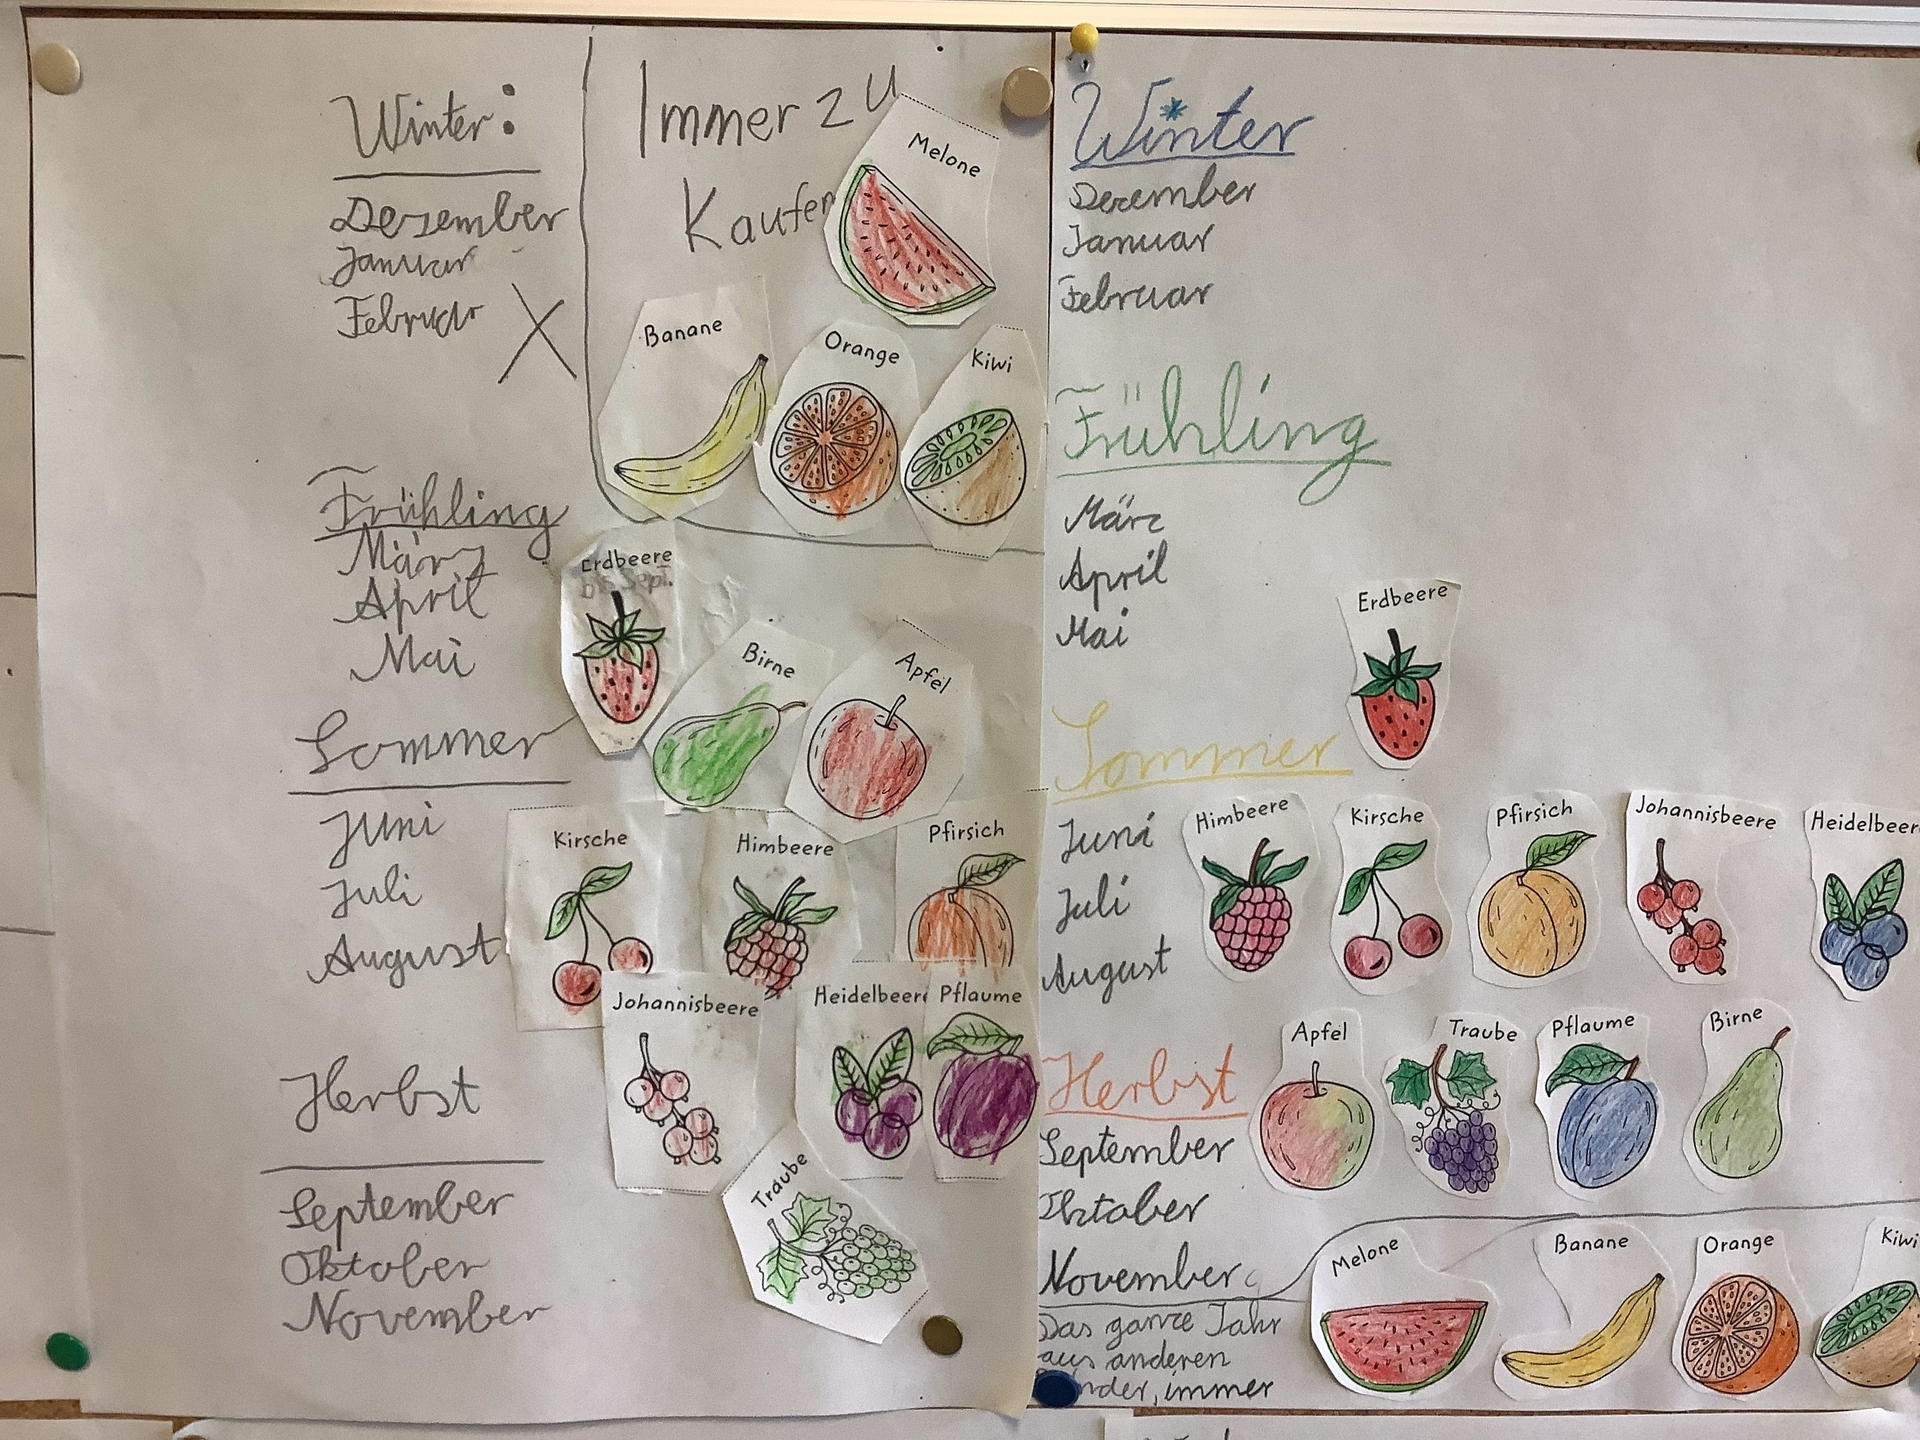 Winter:
Dezember
Januar
Februar
Immer zu
Kaufen
Melone
Banane
Orange
Kiwi
Frühling
März
April
Mai
Erdbeere
Birne
Apfel
Sommer
Juni
Juli
August
Kirsche
Himbeere
Pfirsich
Johannisbeere
Heidelbeere
Pflaume
Herbst
September
Oktober
November
Traube
Winter
Dezember
Januar
Februar
Frühling
März
April
Mai
Erdbeere
Sommer
Juni
Juli
August
Himbeere
Kirsche
Pfirsich
Johannisbeere
Heidelbeere
Herbst
September
Oktober
November
Apfel
Traube
Pflaume
Birne
Das ganze Jahr
aus anderen
immer
Melone
Banane
Orange
Kiwi